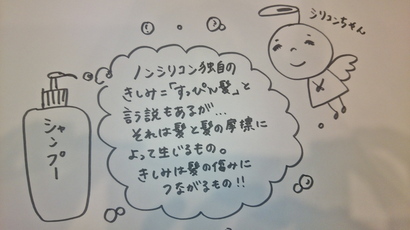 シリコンちゃん
ノンシリコン独自の
きしみ=「すっぴん髪」と
言う説もあるが…
それは髪と髪の摩擦に
よって生じるもの。
きしみは髪の傷みに
つながるもの!!
シャンプー